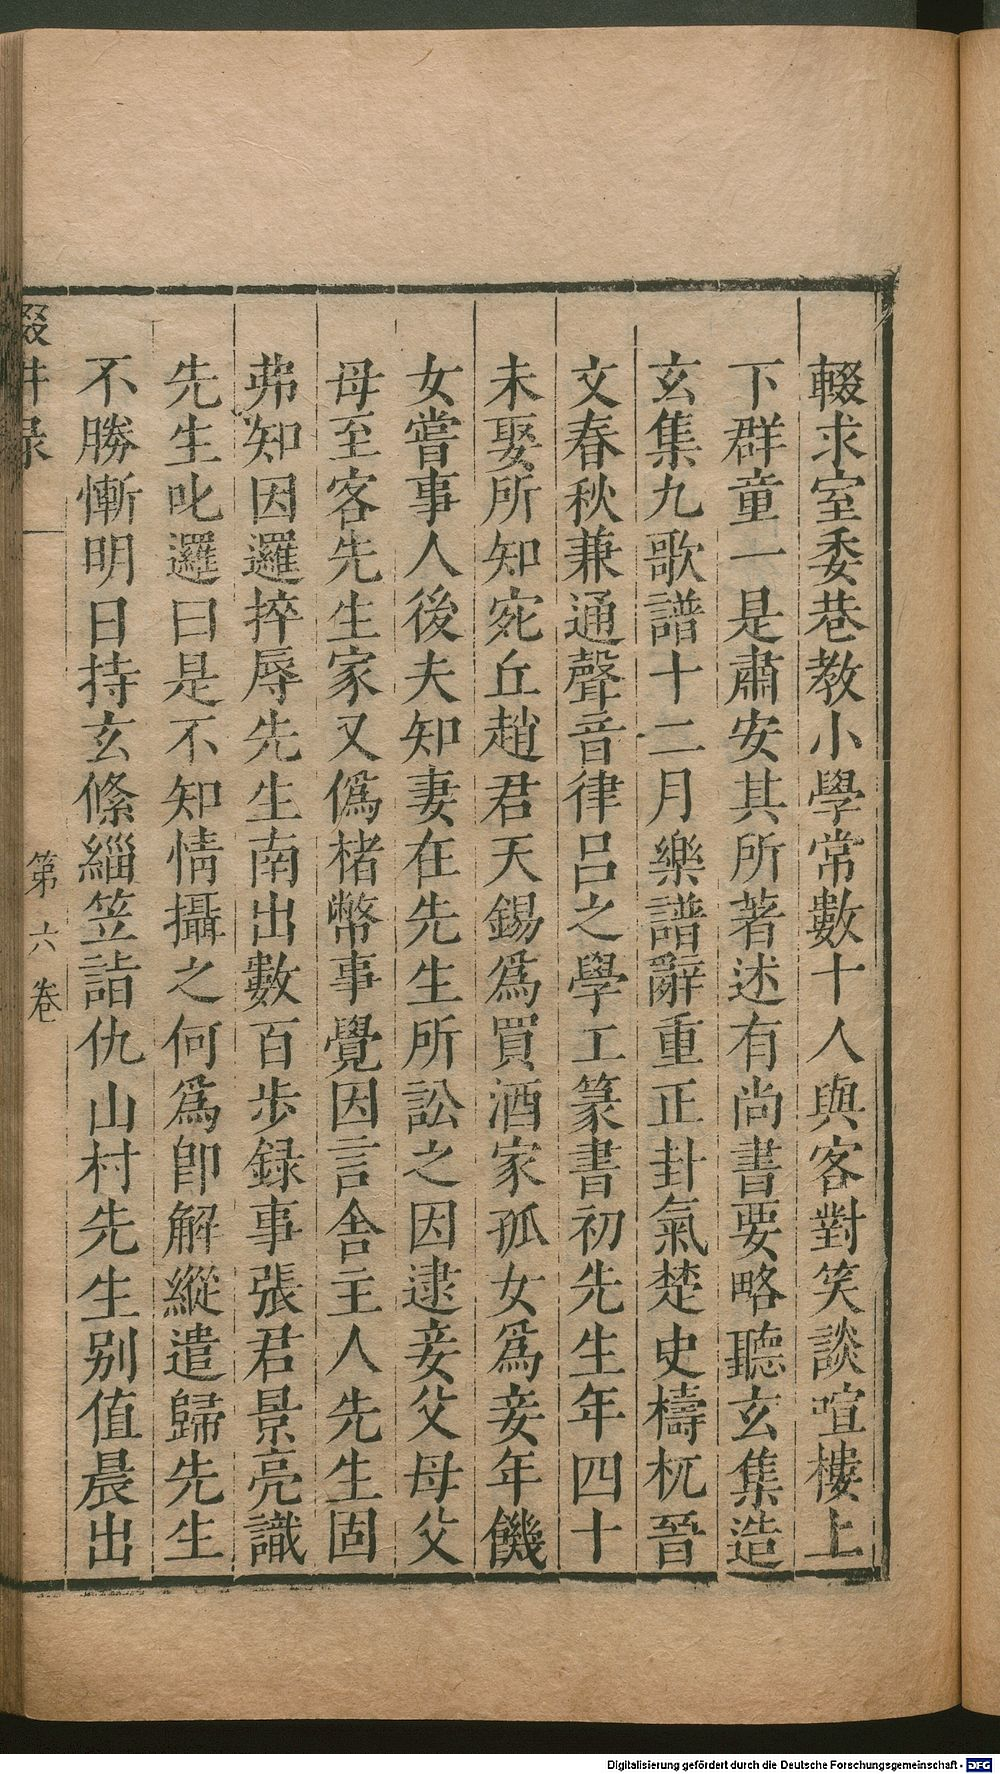 輟求室委巷教小學常數十人與客對笑談喧樓上
下群童一是肅安其所著述有尚書要略聽玄集造
玄集九歌譜十二月樂譜辭重正卦氣楚史檮杌晉
文春秋兼通聲音律呂之學工篆書初先生年四十
未娶所知宛丘趙君天錫爲買酒家孤女爲妾年饑
女嘗事人後夫知妻在先生所訟之因逮妾父母父
母至客先生家又僞楮幣事覺因言舍主人先生固
弗知因邏捽辱先生南出數百步録事張君景亮識
先生叱邏曰是不知情攝之何爲卽解縱遣歸先生
不勝慚明日持玄絛緇笠詣仇山村先生别值晨出
輟畊录
第六卷
Digitalisierung gefördert durch die Deutsche Forschungsgemeinschaft - DFG